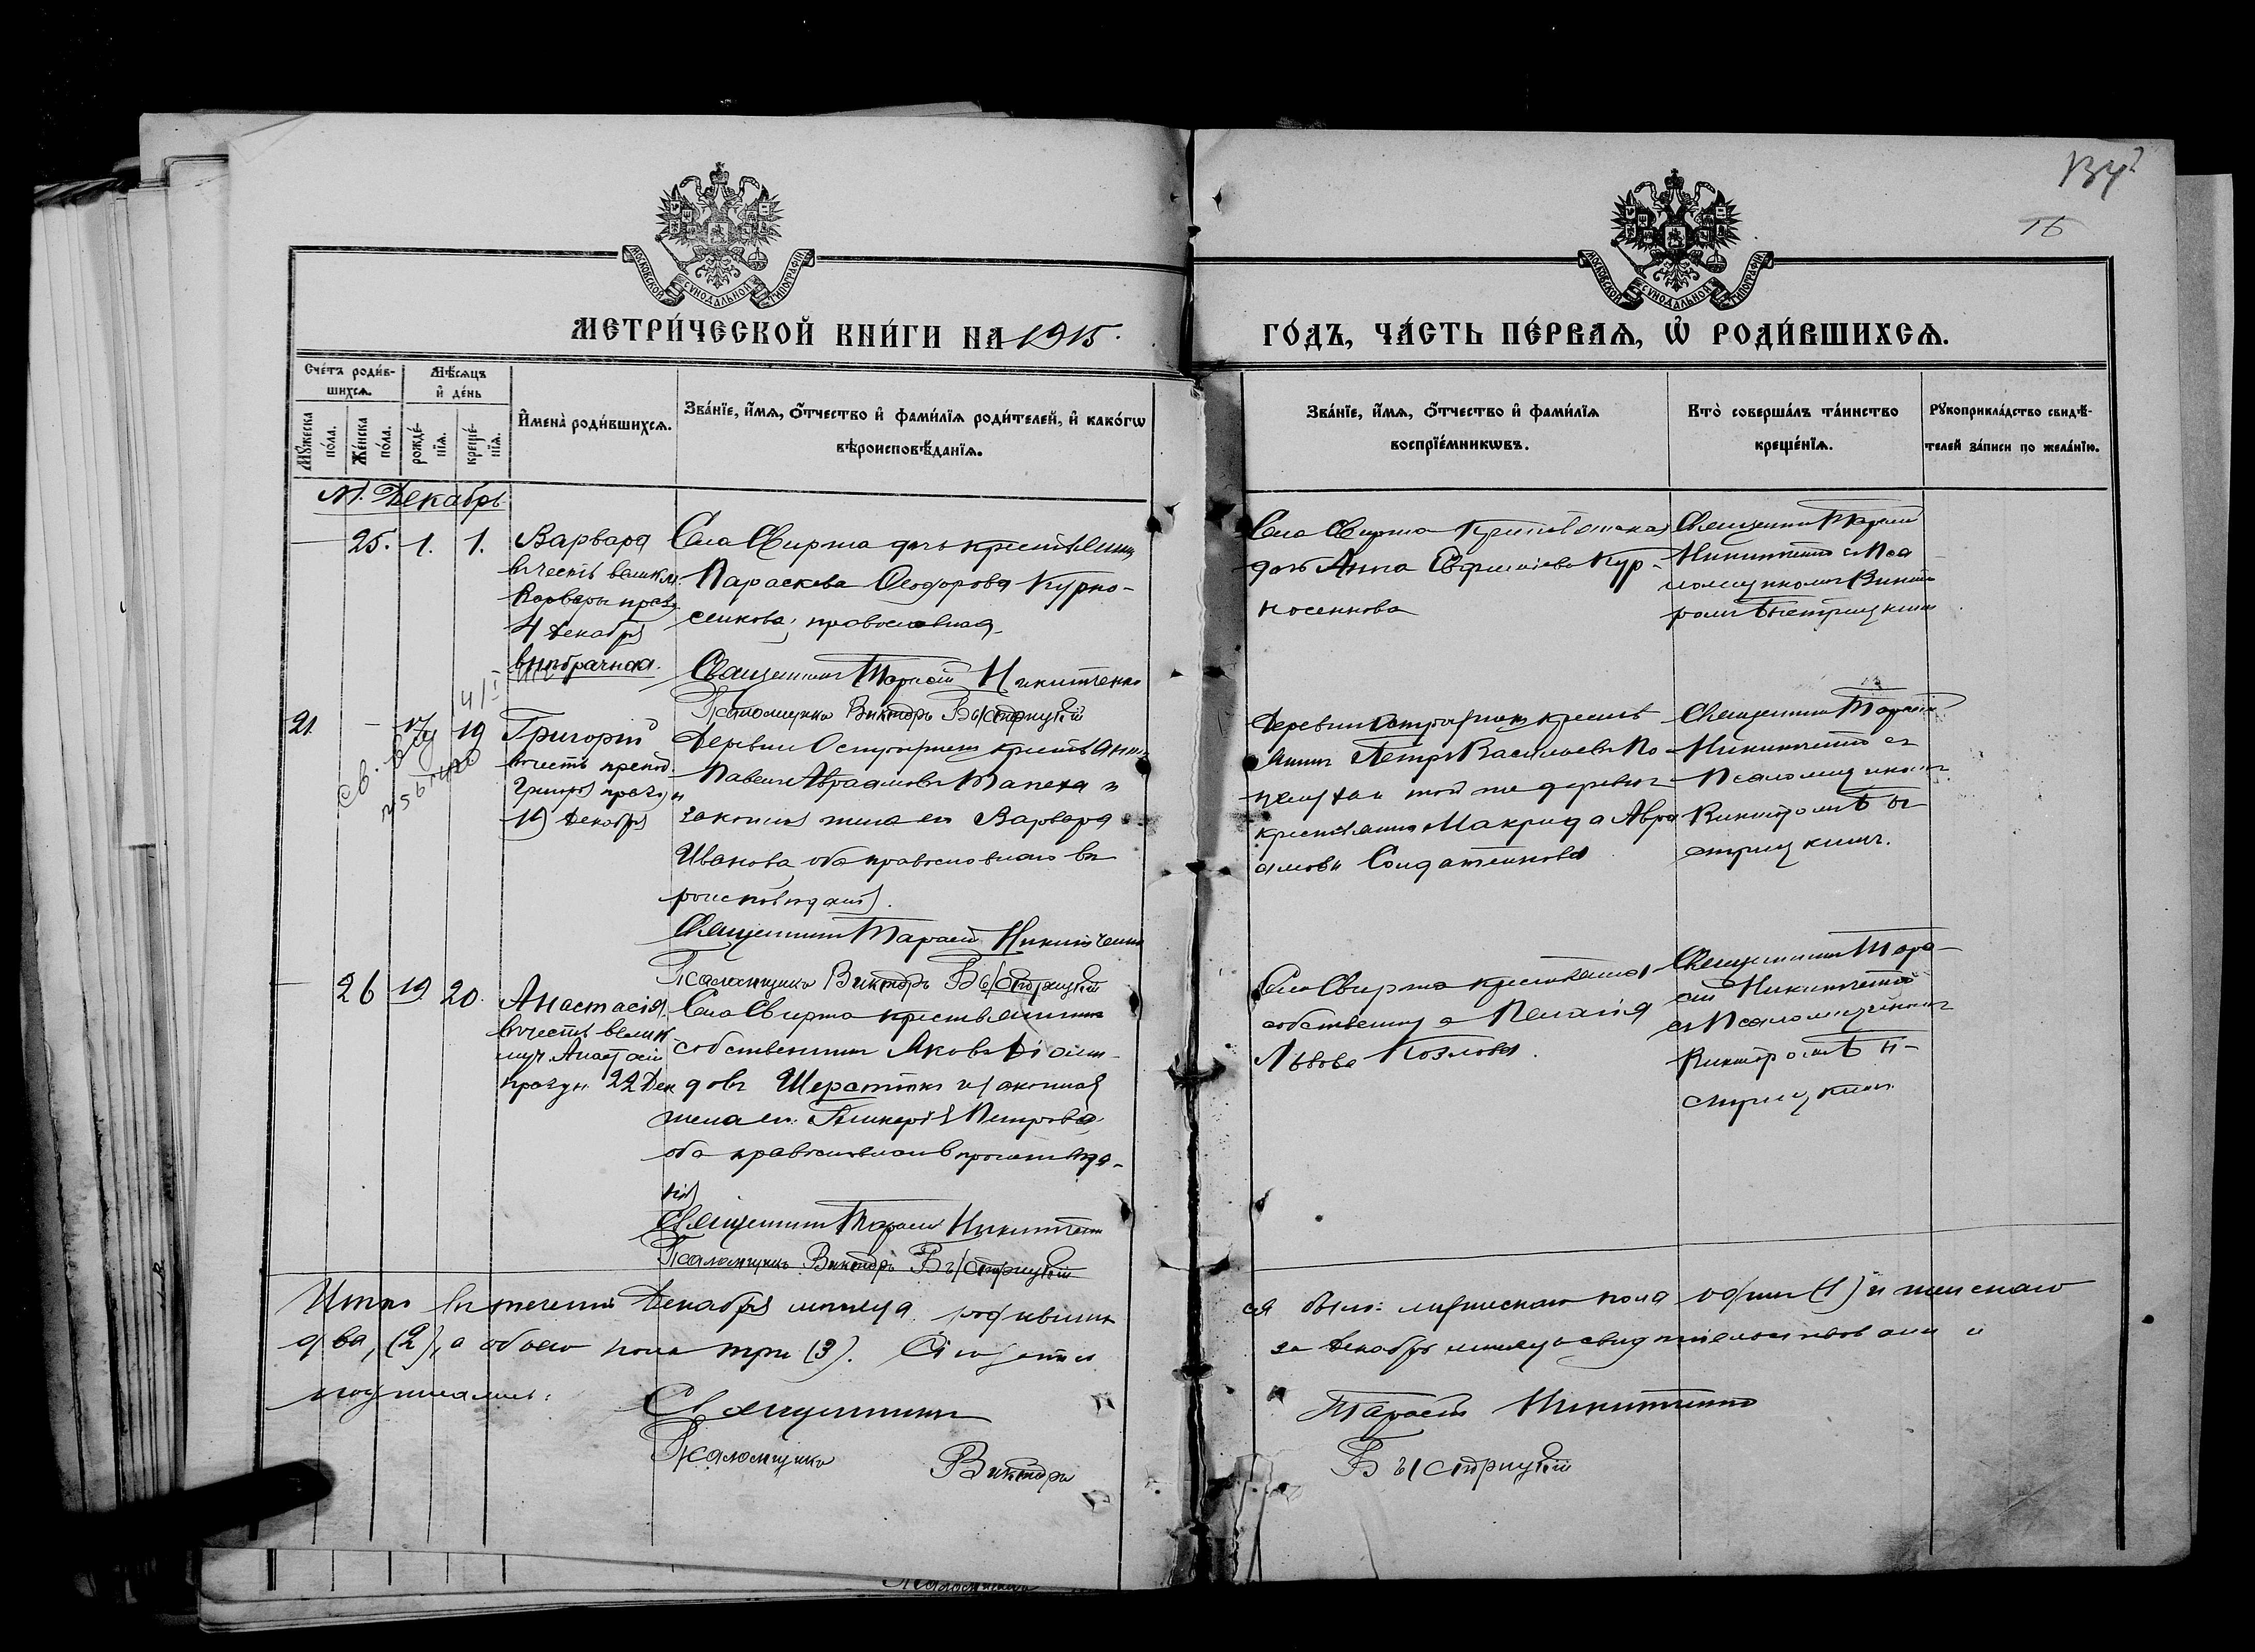 134
16
МОСКОВСКОЙ СѴНОДАЛЬНОЙ ТИПОГРАФІИ
МОСКОВСКОЙ СѴНОДАЛЬНОЙ ТИПОГРАФІИ
МЕТРИ́ЧЕСКОЙ КНИ́ГИ НА 1915.
ГО́ДЪ, ЧА́СТЬ ПЕ́РВАѦ, Ѡ҆ РОДИ́ВШИХСѦ.
Сче́тъ роди́в-
шихсѧ.
Мѣ́сѧцъ
и҆ де́нь
Мꙋ́жеска
по́ла.
Же́нска
по́ла.
рожде́-
нїѧ.
креще́-
нїѧ.
И҆мена̀ роди́вшихсѧ.
Зва́нїе, и҆́мѧ, ѻ҆́тчество и҆ фами́лїѧ роди́телей, и҆ како́гѡ
вѣроисповѣ́данїѧ.
Зва́нїе, и҆́мѧ, ѻ҆́тчество и҆ фами́лїѧ
воспрїе́мникѡвъ.
Кто̀ соверша́лъ та́инство
креще́нїѧ.
Рꙋкоприкла́дство свидѣ́-
телей за́писи по жела́нїю.
М. Декабрь
25. 1. 1. Варвара
въ честь велик. м.
Варвары празд.
4 Декабря
внѣбрачная.
Села Свирта дочь крестьянина
Параскева Ѳеодорова Курно-
сенкова, православная.
Священникъ Тарасій Никитченко
Псаломщикъ Викторъ Быстрицкій
Села Свирта крестьянская
дочь Анна Кур-
носенкова
Священникъ Тарасій
Никитченко съ Пса
ломщикомъ Викто
ромъ Быстрицкимъ
21. 17 19 Григорій
въ честь препод.
Декабря
Деревни крестьянинъ
Павелъ Авраамовъ Тапеха и
законная жена его Варвара
Иванова, оба православнаго вѣ
роисповѣданія.
Священникъ Тарасій Никитченко
Псаломщикъ Викторъ Быстрицкій
Деревни кресть
янинъ Петръ Васильевъ
той же деревни
крестьянка Макрида Авра
амова Солдатенкова
Священникъ Тарасій
Никитченко съ
Псаломщикомъ
Викторомъ Бы
стрицкимъ.
26 19 20. Анастасія
въ честь велик.
муч. Анастасіи
празун. 22 Дек
Села Свирта крестьянинъ
собственникъ Яковъ
довъ и законная
жена его Гликерія Петрова
оба православнаго вѣроисповѣда-
нія
Священникъ Тарасій Никитченко
Псаломщикъ Викторъ Быстрицкій
Села Свирта крестьянка
собственница Пелагія
Львова Козлова.
Священникъ Тара-
сій Никитченко
съ Псаломщикомъ
Викторомъ Бы-
стрицкимъ
Итого въ теченіи Декабря мѣсяца родивших
ся было: мужескаго пола одинъ (1) и женскаго
два, (2), а обоего пола три (3).
за Декабрь мѣсяцъ свидѣтельствовали и
подписались:
Священникъ Тарасій Никитченко
Псаломщикъ Викторъ Быстрицкій